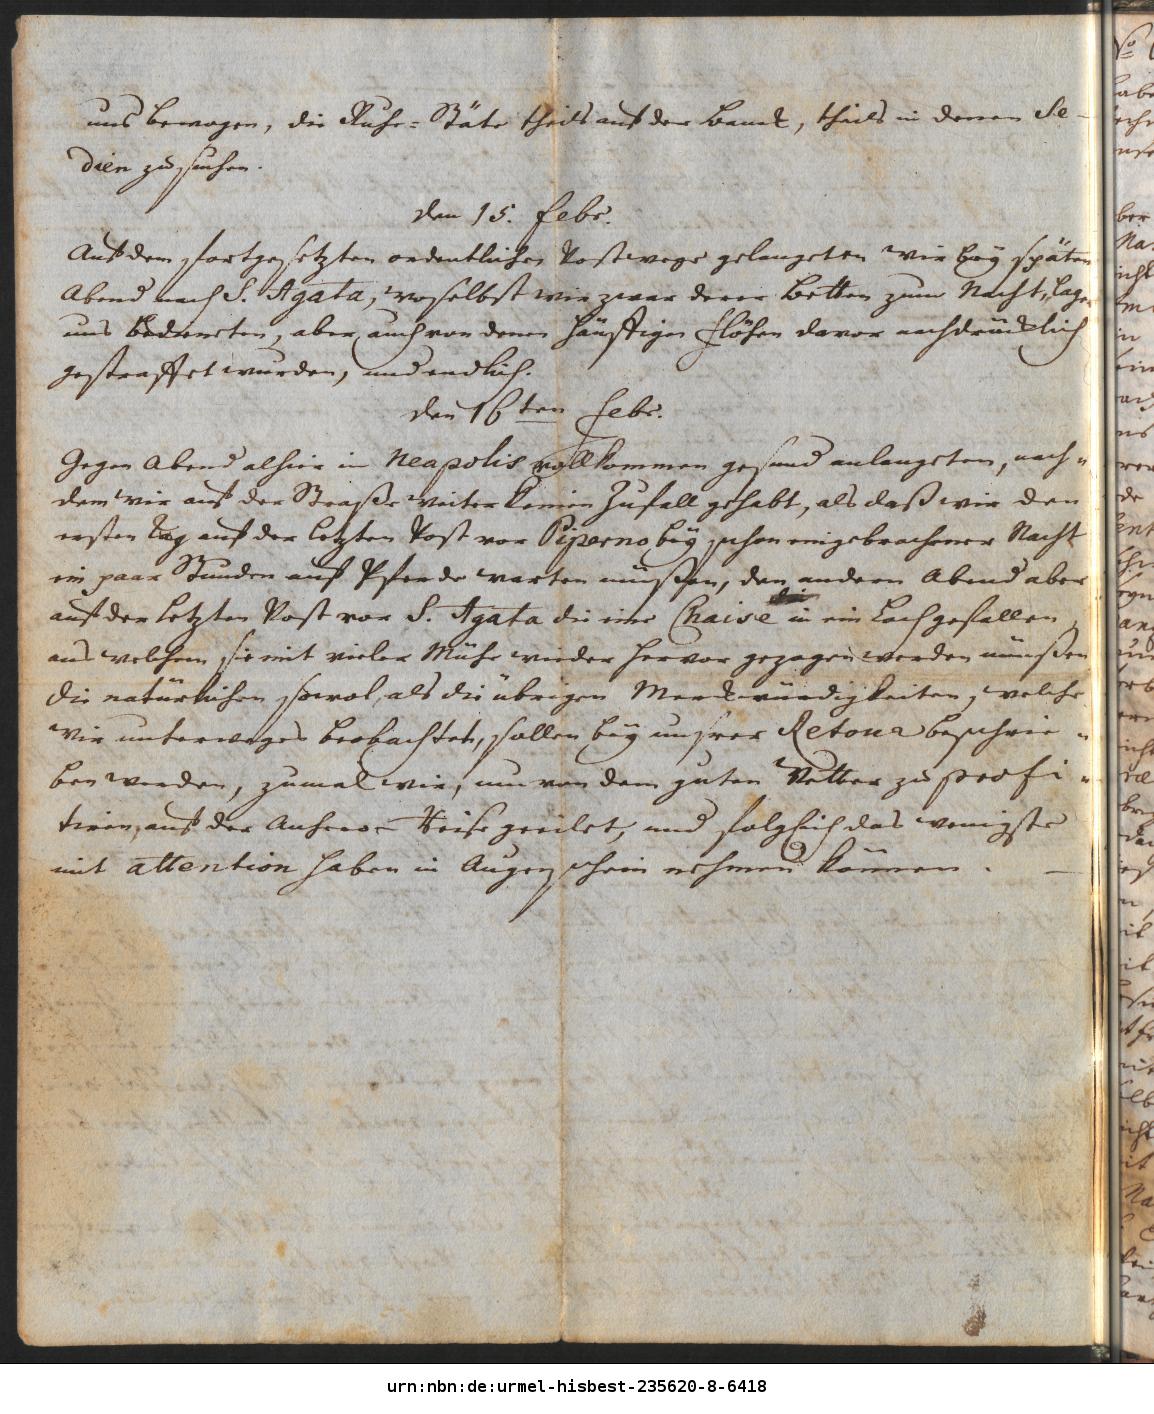 uns bewogen, die Ruhe-Stäte theils auf der Banck, theils in denen Se-
dien zu suchen.
den 15. Febr.
Auf dem fortgesetzten ordentlichen Postwege gelangeten wir bey späten
Abend nach S. Agata, woselbst wir zwar derer Betten zum Nacht-Lager
uns bedienten, aber auch von denen häuffigen Flöhen davor nachdrücklich
gestraffet wurden, und endlich.
den 16ten Febr.
Gegen Abend alhier in Neapolis vollkommen gesund anlangeten, nach-
dem wir auf der Straße weiter keinen Zufall gehabt, als daß wir den
ersten Tag auf der letzten Post vor Piperno bey schon eingebrochener Nacht
ein paar Stunden auf Pferde warten müßen, den andern Abend aber
auf der letzten Post vor S. Agata die eine Chaise in ein Loch gefallen,
aus welchem sie mit vieler Mühe wieder hervor gezogen werden müßen
Die natürlichen sowol, als die übrigen Merckwürdigkeiten, welche
wir unterweges beobachtet, sollen bey unsrer Retour beschrie-
ben werden, zumal wir, um von dem guten Wetter zu profi-
tiren, auf der Anhero-Reise geeilet, und folglich das wenigste
mit attention haben in Augenschein nehmen können.
urn:nbn:de:urmel-hisbest-235620-8-6418